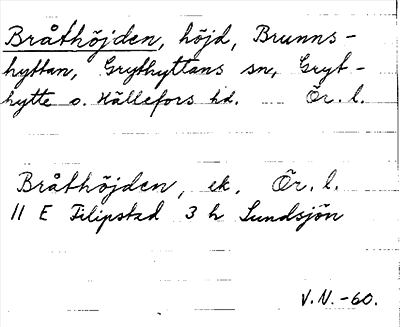 Bråthöjden, höjd, Brunns-
hyttan, Grythyttans sn, Gryt-
hytte o. Hällefors hd. Ör. l.
Bråthöjden, ek. Ör. l.
11 E Filipstad 3 h Lundsjön
V.N.-60.